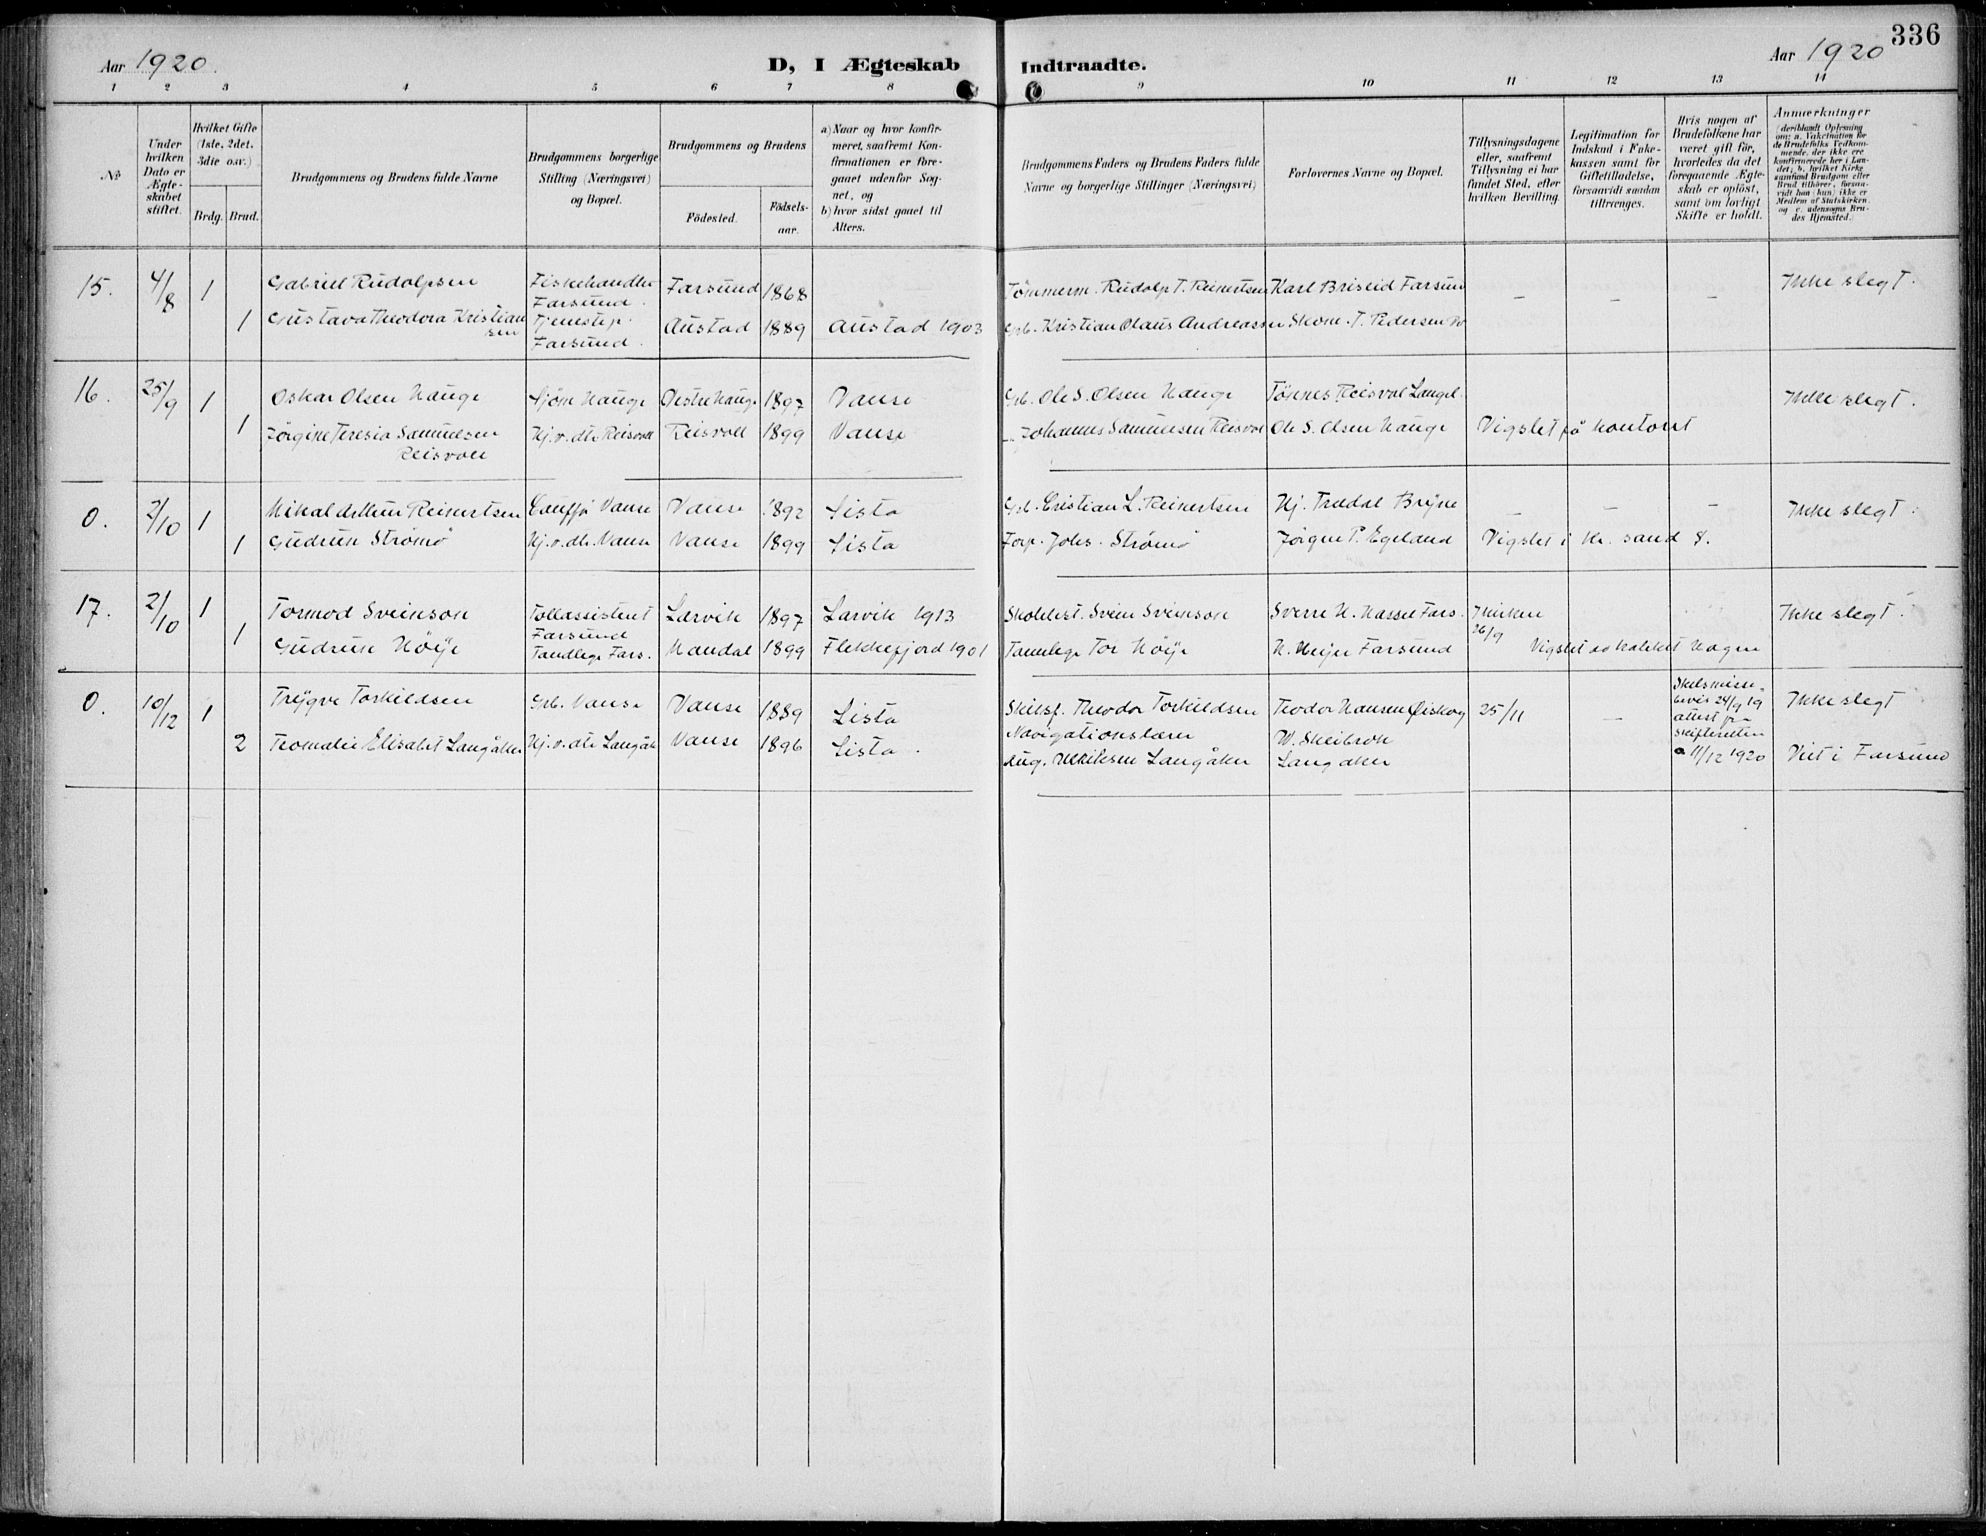 336
Aar 1920.
D, I Ægteskab Indtraadte.
Aar 1920
1 2 3 4 5 6 7 8 9 10 11 12 13 14
No
Under hvilken Dato er Ægteskabet stiftet.
Hvilket Gifte (1ste, 2det, 3die osv.)
Brdg. Brud.
Brudgommens og Brudens fulde Navne
Brudgommens borgerlige Stilling (Næringsvei) og Bopæl.
Brudgommens og Brudens
Födested.
Födsels-aar.
a) Naar og hvor konfirmeret, saafremt Konfirmationen er foregaaet udenfor Sognet, og
b) hvor sidst gaaet til Alters.
Brudgommens Faders og Brudens Faders fulde Navne og borgerlige Stillinger (Næringsvei)
Forlovernes Navne og Bopæl.
Tillysningsdagene eller, saafremt Tillysning ei har fundet Sted, efter hvilken Bevilling.
Legitimation for Indskud i Enkekassen samt for Giftetilladelse, forsaavidt saadan tiltrænges.
Hvis nogen af Brudefolkene har været gift för, hvorledes da det foregaaende Ægteskab er oplöst, samt om lovligt Skifte er holdt.
Anmærkninger
(deriblandt Oplysning om: a. Vakcination for de Brudefolks Vedkommende, der ikke ere konfirmerede her i Landet; b. hvilket Kirkesamfund Brudgom eller Brud tilhörer, forsaavidt han (hun) ikke er Medlem af Statskirken, og c. udensogns Brudes Hjemsted.)
15. 4/8 1 Gabriel Rudolpsen Fiskehandler Farsund. Farsund 1868 Tømmerm. Rudolp T. Reinertsen Karl Briseid Farsund – – – Ikke slegt.
1 Gustava Theodora Kristiansen Tjenestep. Farsund. Austad 1889 Austad 1903 Grb. Kristian Olaus Andreassen Skom. T. Pedersen Do
16. 25/9 1 Oskar Olsen Hauge Sjøm Hauge Østre Hauge 1897 Vanse Grb. Ole S. Olsen Hauge Tønnes Reisvol Langel. Ikke slegt.
1 Jørgine Teresia Samuelsen Reisvoll Hj.v.dtr Reisvoll Reisvoll 1899 Vanse – Johannes Samuelsen Reisvol Ole S. Olsen Hauge Vigslet på kontoret
0. 2/10 1 Mikal Arthur Reinertsen Vanse Vanse 1892 Lista Grb. Cristian L. Reinertsen Hj. Trædal Bryne – – – Ikke slegt.
1 Gudrun Strømø Hj.v.dtr. Vanse Vanse 1899 Lista Forp. Johs. Strømø Jørgen P. Egeland Vigslet i Kr. sand S.
17. 2/10 1 Tormod Sveinson Tollassistent Farsund Larvik 1897 Larvik 1913 Svein Sveinson Sverre H. Hassel Fars. Kirken 26/9 Ikke slegt.
1 Gudrun Höÿe Tandlege Fars. Mandal 1899 Flekkefjord 1901 Tannlege Tor Höÿe H. Meyer Farsund Vigslet av Hagen
0. 10/12 1 Trygve Torkildsen Grb. Vanse Vanse 1889 Lista Skibsf. Theodor Torkildsen Teodor Hansen Øiskog 25/11 – Skilsmisse-bevis 24/9 19 attest fra skifteretten 11/12 1920 Ikke slegt
2 Teomalie Elisabet Langåker Hj.v.dtr Langåk Vanse 1896 Lista. Navigationslærer Aug. Ulriksen Langåker W. Skeibrok Langaker Viet i Farsund